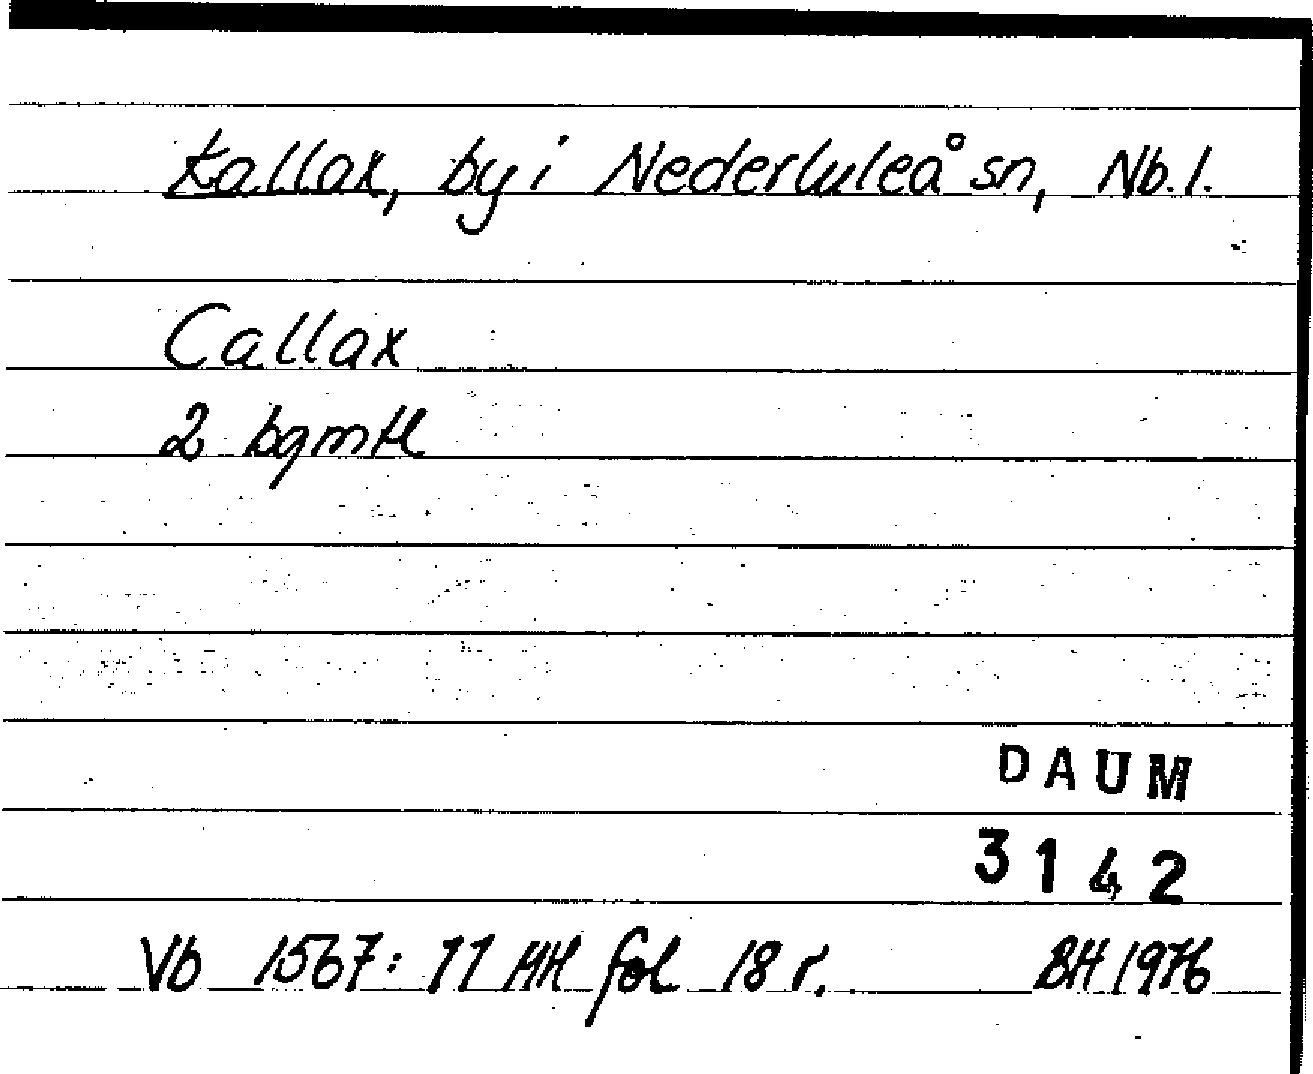 Kallax, by i Nederluleå sn, Nb. l.
Callax
2 bgmtl
DAUM
3142
Vb 1567: 11 HH fol 18 r. BH 1976